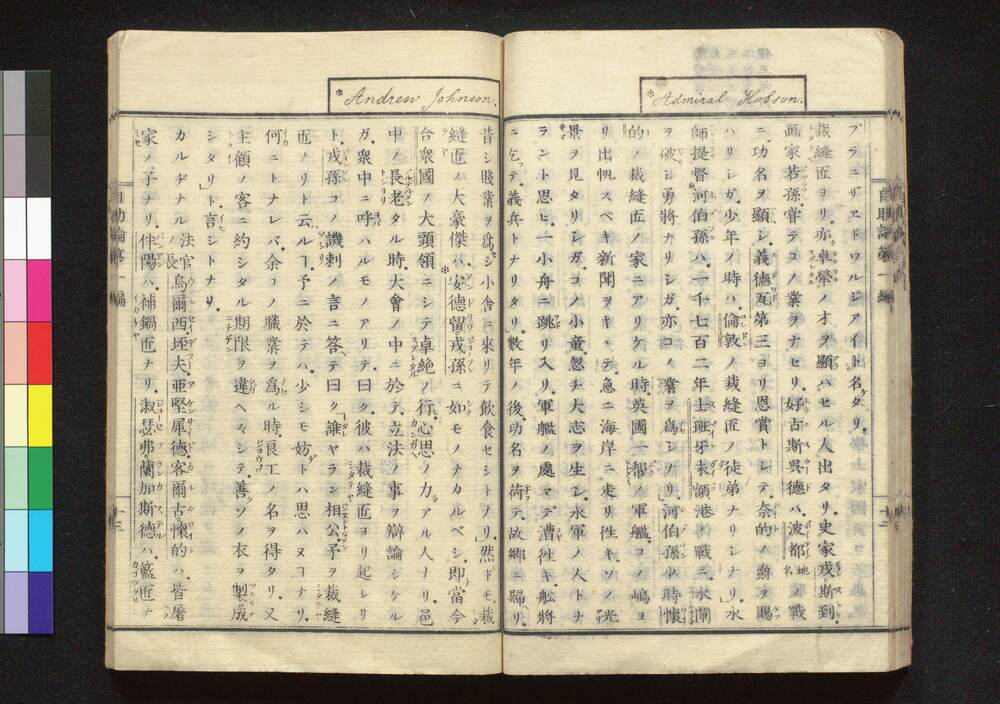 *Admiral Hobson.
ブラニザエドウルジアイ上名タリ。
裁縫匠ヨリ亦卓犖ノオヲ顯ハセル人出タリ。史家戎斯到
画家若孫甞テコノ業ヲナセリ。好古斯呉德ハ波都地名ノ戰
ニ功名ヲ顯シ義德瓦第三ヨリ恩賞トシテ奈的ノ爵ヲ賜
ハリシガ少年ノ時ハ倫敦ノ裁縫匠ノ徒弟ナリシナリ」水
師提督河伯孫ハ一千七百二年士班牙未額港ノ戰ニ氷閘
ヲ破シ勇將ナリシガ亦コノ業ヲ爲シナリ。河伯孫少時懷
的ノ裁縫匠ノ家ニアリケル時英國一都ノ軍艦コノ嶋ヨ
リ出帆スベキ新聞ヲキヽテ急ニ海岸ニ走リ徃キソノ光
景ヲ見タリシガコノ小童忽チ大志ヲ生シ水軍ノ人トナ
ラント思ヒ一小舟ニ跳リ入リ軍艦ノ處マデ漕徃キ舩將
ニ乞テ義兵トナリタリ」數年ノ後功名ヲ荷テ故鄉ニ歸リ
*Andrew Johnson.
昔シ賤業ヲ爲シ小舎ニ來リテ飲食セシトナリ」然ドモ裁
縫匠ノ大豪傑ハ安德留戎孫ニ如モノナカルベシ即當今
台衆國ノ大頭領ニシテ卓絶ノ行心思ノ力アル人ナリ邑
中ノ長老タル時大會ノ中ニ於テ立法ノ事ヲ辯論シケル
ガ衆中ニ呼ハルモノアリテ曰ク彼ハ裁縫匠ヨリ起レリ
ト戎孫コノ譏刺ノ言ニ答テ曰ク「誰ヤラン相公予ヲ裁縫
匠ナリト云ルヿ予ニ於テハ少シモ妨トハ思ハヌヿナリ
何ニトナレバ余コノ職業ヲ爲ル時良工ノ名ヲ得タリ又
主顧ノ客ニ約シタル期限ヲ違ヘズシテ善クソノ衣ヲ製成
シタリ」ト言シトナリ
カルヂナルノ法官長烏爾西垤夫亞堅犀德客爾古懷的ハ皆屠
家ノ子ナリ伴陽ハ補鍋匠ナリ淑瑟弗蘭加斯德ハ籃匠ナ